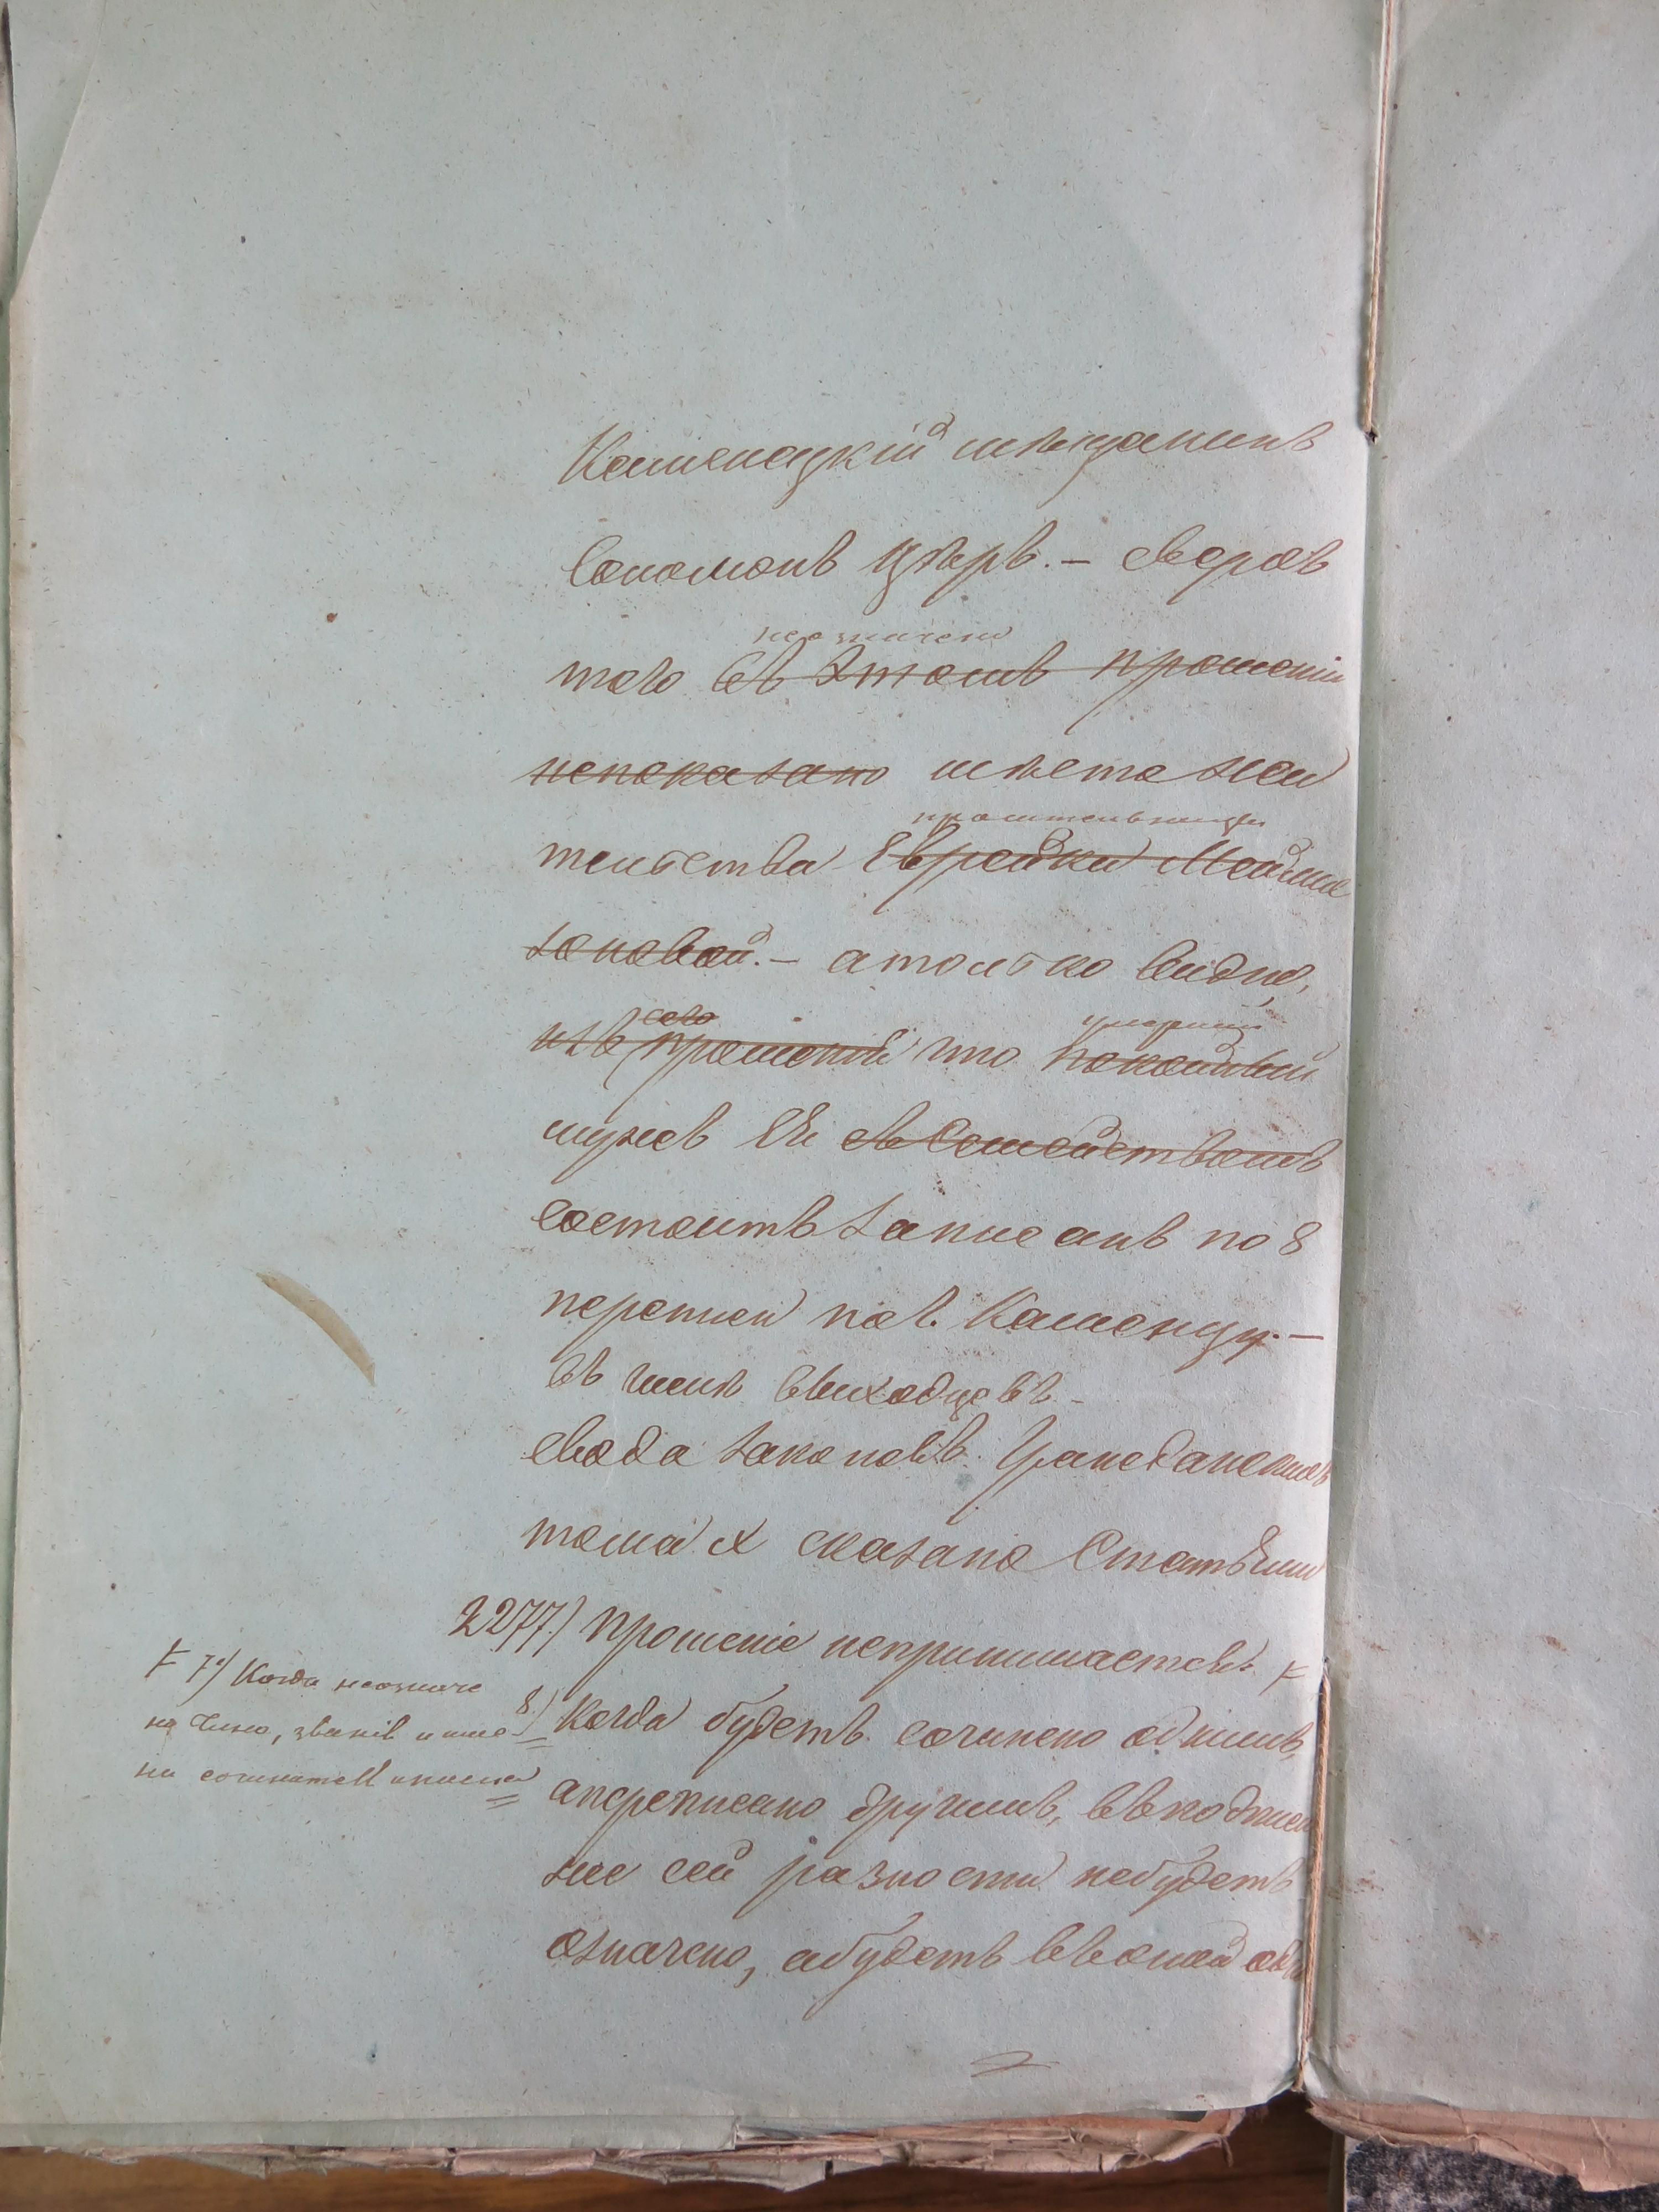 Каменецкій мѣщанинъ
Соломонъ Цѣрръ. — сверхъ
неозначено
того въ этомъ прошеніи
непоказано мѣста жи
тельства просительницы
Еврейки
зоновой. — а только видно,
сего
изъ прошеній что покойный
умершій
мужъ Ея съ Семействомъ
состоитъ записанъ по 8
переписи по г. Каменцу. —
въ числѣ выходцевъ —
свода законовъ Гражданскихъ
тома X сказано Статьями
2277) прошеніе непринимается.
7) Когда неозначе
но чина, званія и име
ни сочинителя
8) Когда будетъ сочинено однимъ,
апереписано другимъ, въ подписи
же сей разности небудетъ
означено, абудетъ въ оной